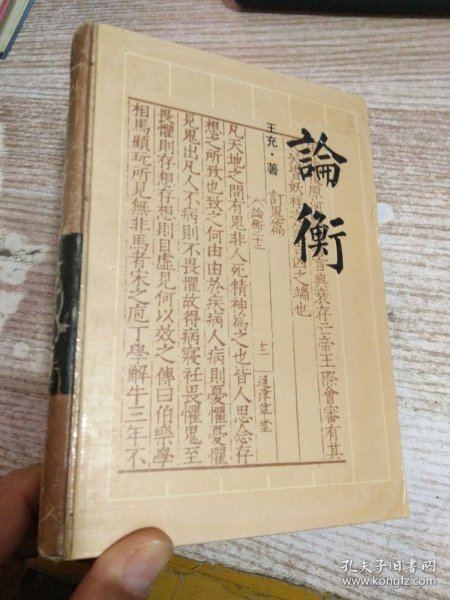 論衡
王充·著
言興衰存亡帝王際會審有其
之端也
訂鬼篇
論衡二十二
十二
通津草堂
凡天地之間有鬼非人死精神為之也皆人思念存
想之所致也致之何由由於疾病人病則憂懼憂懼
見鬼出凡人不病則不畏懼故得病寢衽畏懼鬼至
畏懼則存想存想則目虛見何以效之傳曰伯樂學
相馬顧玩所見無非馬者宋之庖丁學解牛三年不
孔夫子旧书网
www.kongfz.com